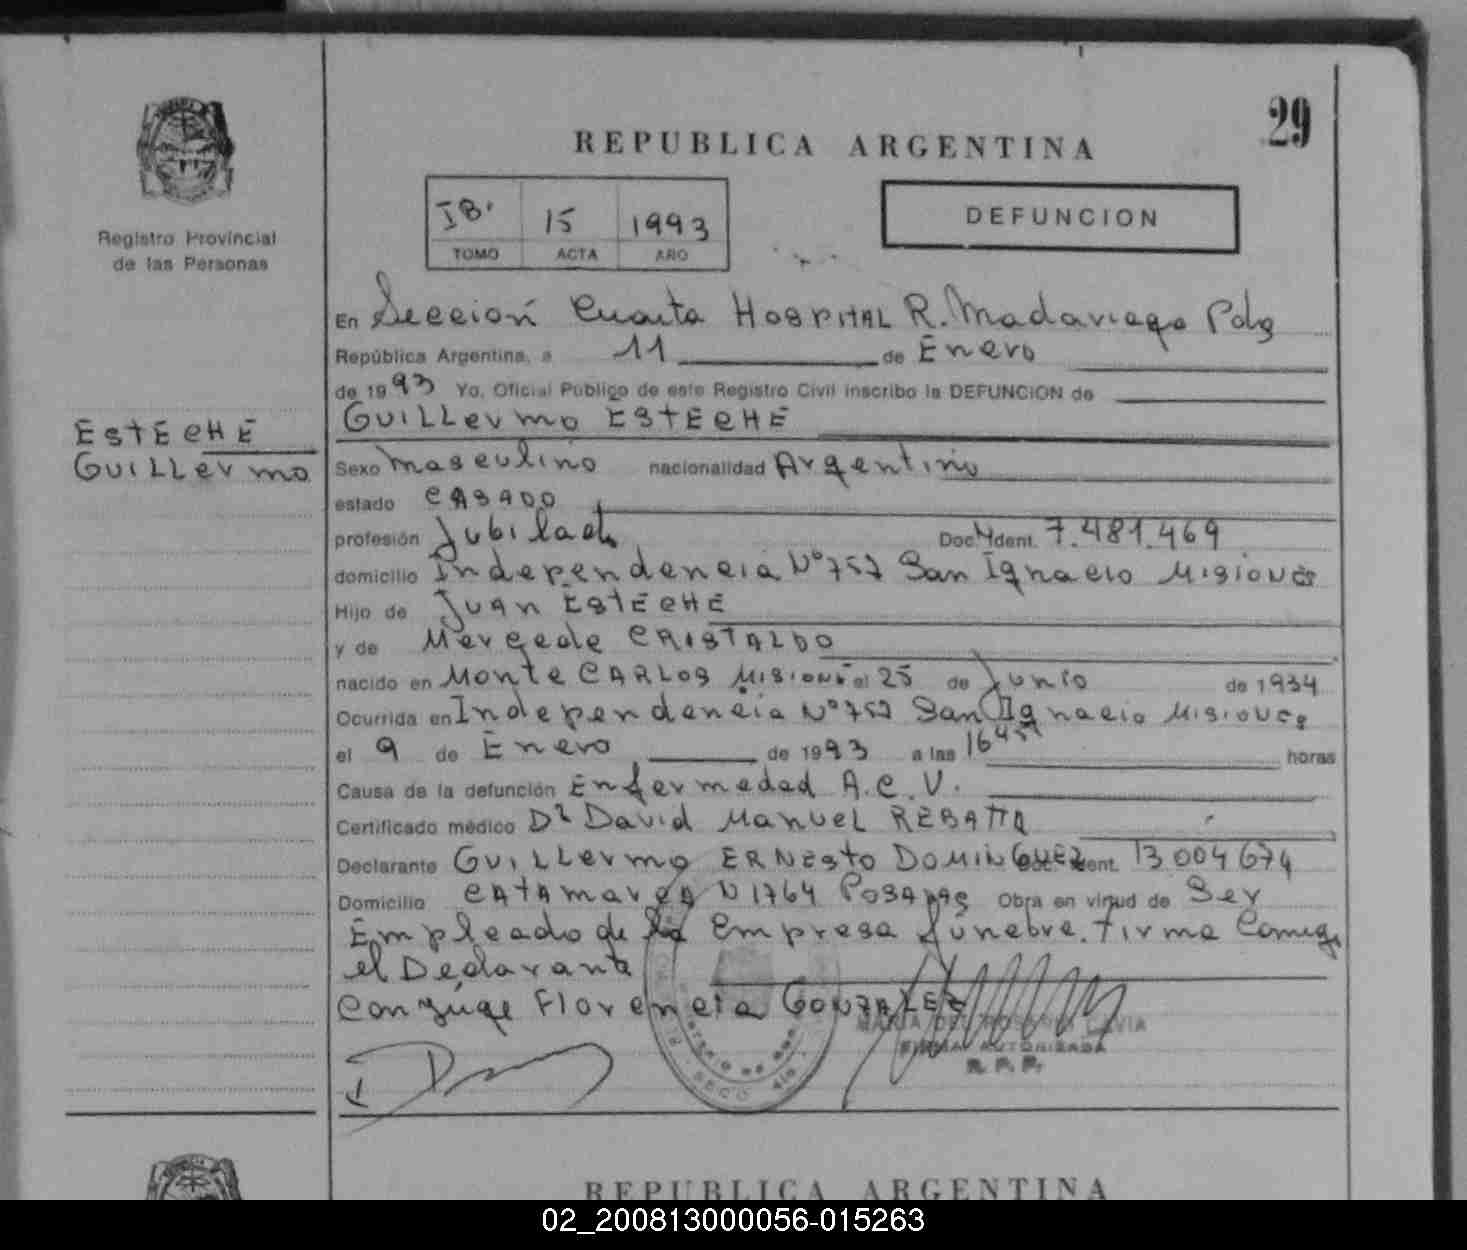 29
REPUBLICA ARGENTINA
IB. 15 1993
TOMO ACTA AÑO
DEFUNCION
Registro Provincial
de las Personas
En Sección Cuarta HOSPITAL R. Madariaga Pdas
República Argentina, a 11 de Enero
de 1993 Yo, Oficial Público de este Registro Civil inscribo la DEFUNCION de
GUILLermo ESTECHE
ESTECHE
GUILLermo
Sexo masculino nacionalidad Argentino
estado CASADO
profesión Jubilado Doc. Ident. 7.481.469
domicilio Independencia Nº 757 San Ignacio Misiones
Hijo de Juan ESTECHE
y de Mercede CRISTALDO
nacido en Monte CARLOS Misiones el 25 de Junio de 1934
Ocurrida en Independencia Nº 757 San Ignacio Misiones
el 9 de Enero de 1993 a las 16 horas
Causa de la defunción Enfermedad A.C.V.
Certificado médico Dr David Manuel REBATTA
Declarante GUILLermo ERNESTO DOMINGUEZ Doc. Ident. 13 004 674
Domicilio CATAMARCA N 1764 POSADAS Obra en virtud de Ser
Empleado de la Empresa fúnebre. Firma Conmigo
el Declarante
Conyuge Florencia GONZALEZ
FIRMA AUTORIZADA
R. P. P.
REPUBLICA ARGENTINA
02_200813000056-015263